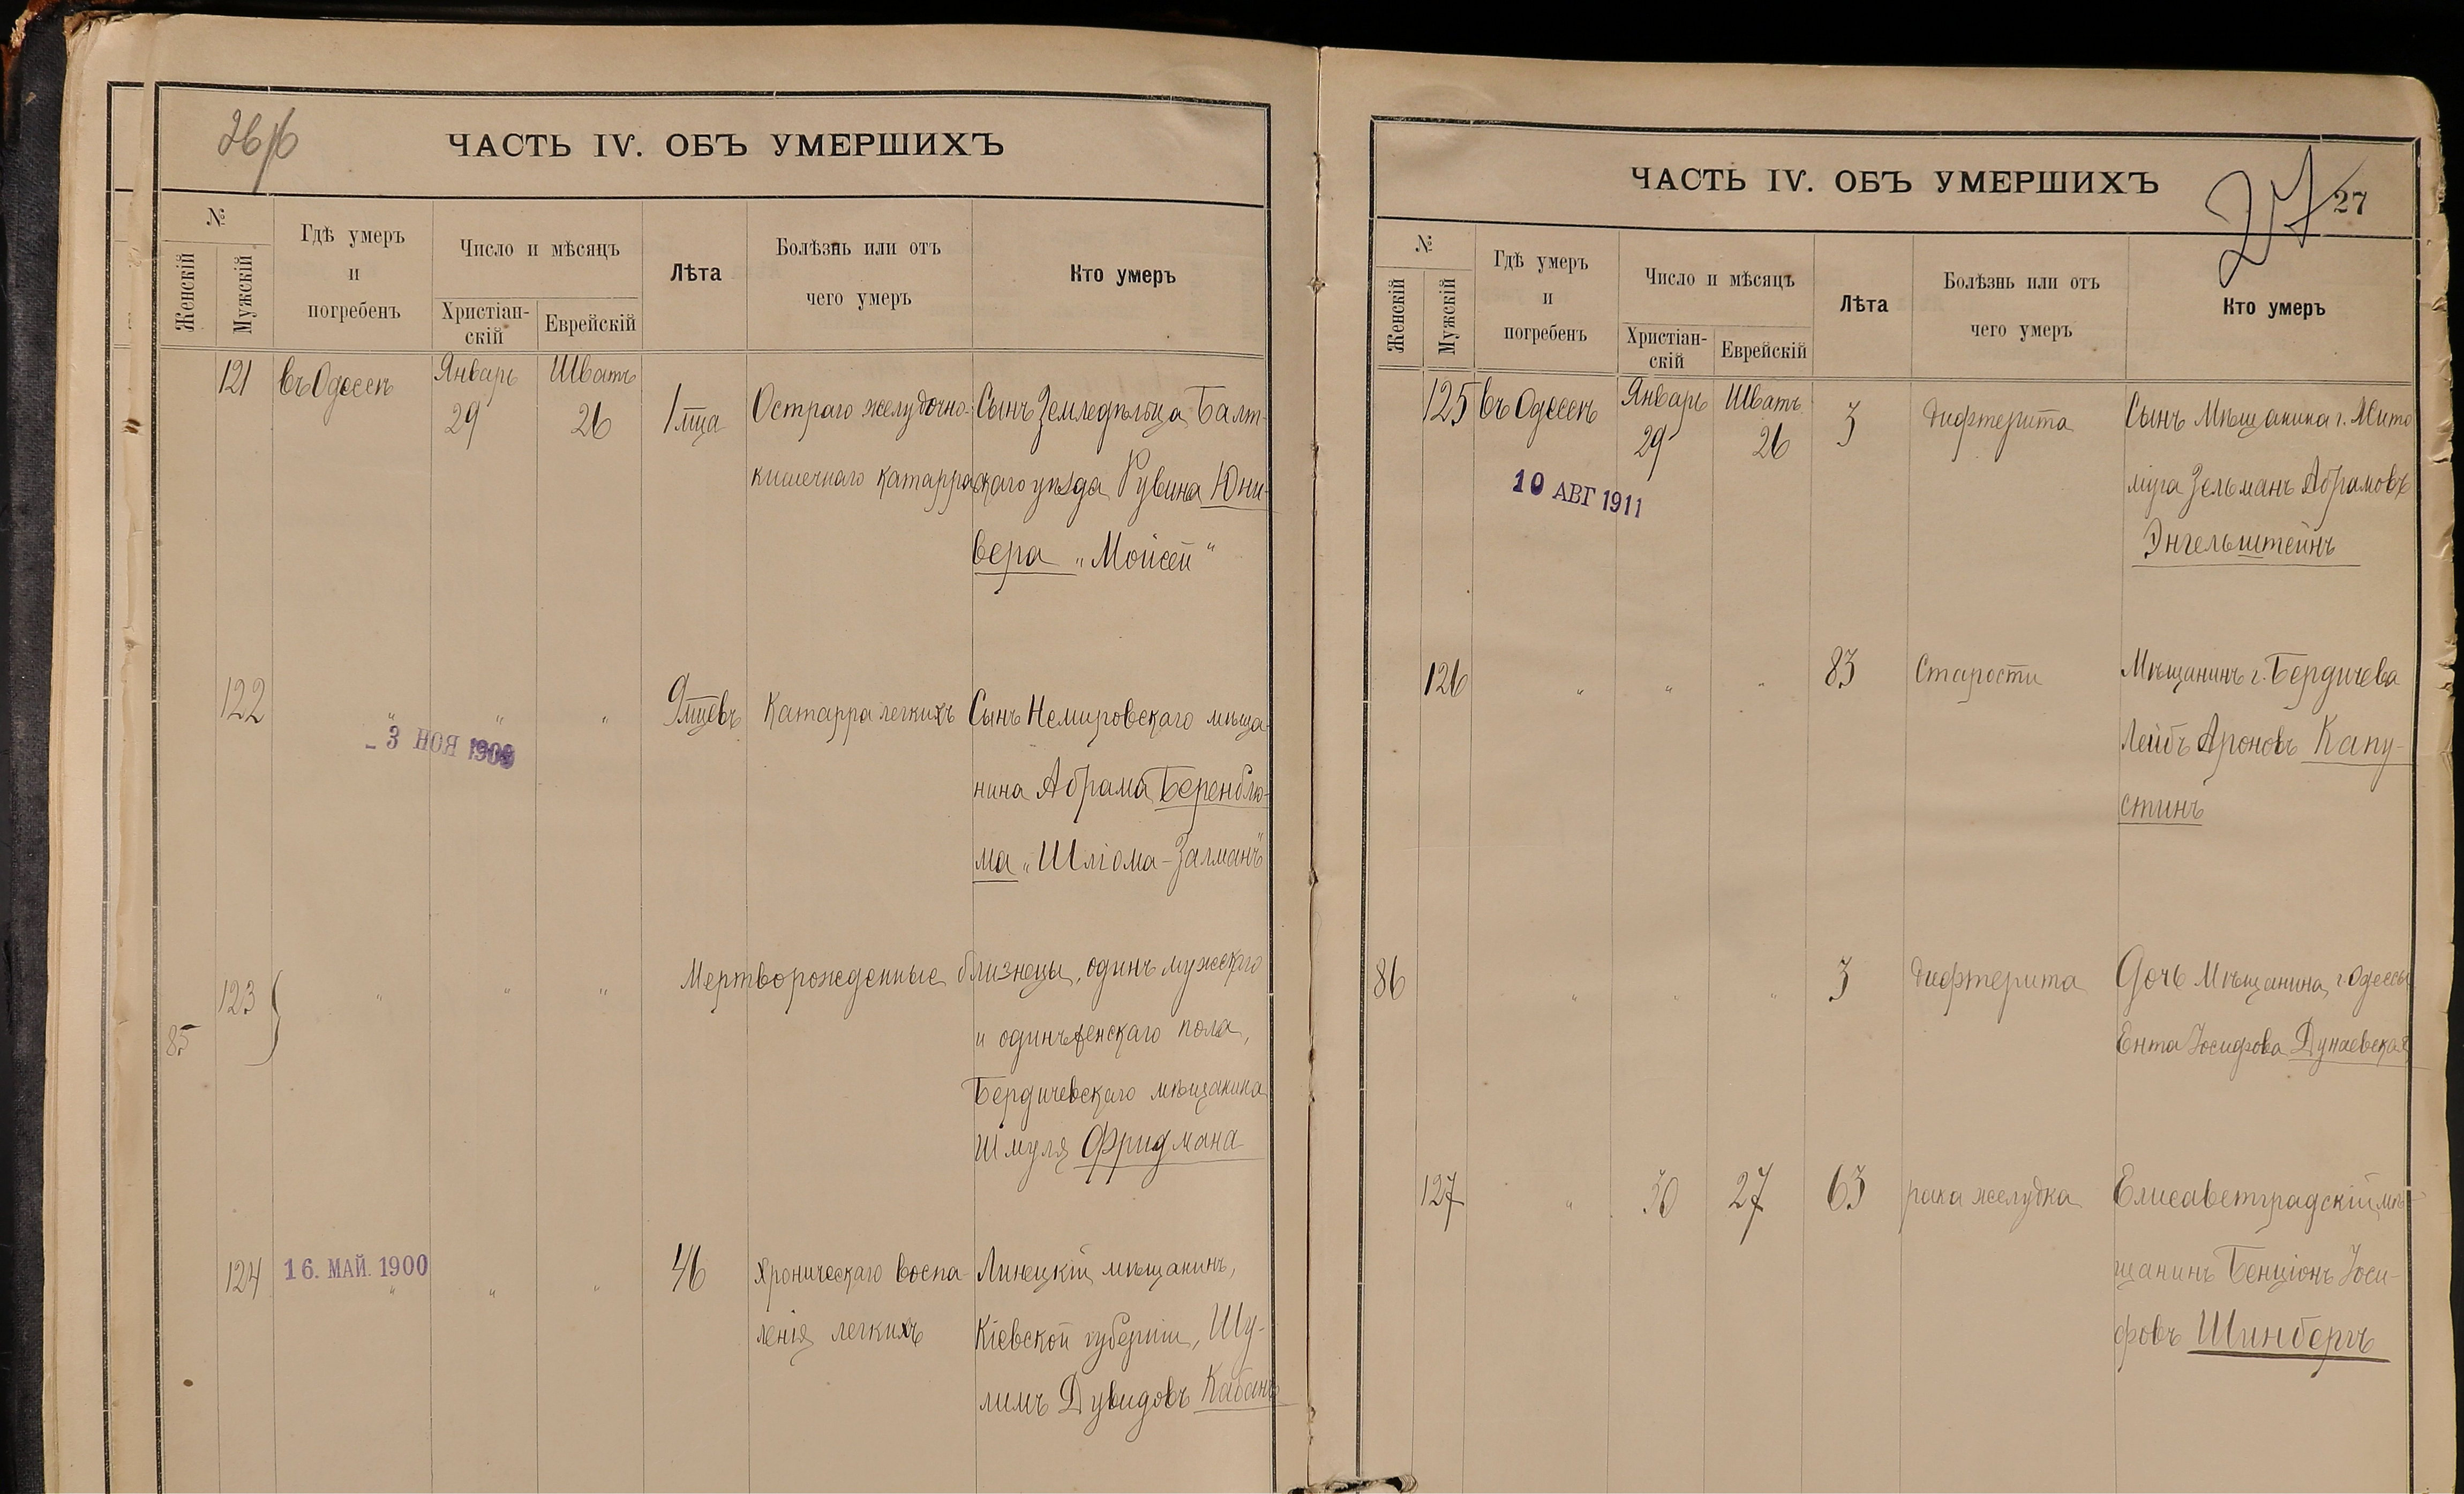 26/б
ЧАСТЬ IV. ОБЪ УМЕРШИХЪ
№
Женскій
Мужскій
Гдѣ умеръ
и
погребенъ
Число и мѣсяцъ
Христіан-
скій
Еврейскій
Лѣта
Болѣзнь или отъ
чего умеръ
Кто умеръ
121 въ Одессѣ Январь Шватъ
29 26 1 мца Остраго желудочно- Сынъ Земледѣльца, Балт-
кишечнаго катарра скаго уѣзда Рувина Юни-
вера „Мойсей“
122 „ „ „ 9 мцевъ Катарра легкихъ Сынъ Немировскаго мѣща-
- 3 НОЯ 1900
нина Абрама Беренблю-
ма „Шліома-Залманъ“
123 „ „ „ Мертворожденные близнецы, одинъ мужскаго
85 и одинъ женскаго пола,
Бердичевскаго мѣщанина
Шмуля Фридмана
16. МАЙ. 1900
124 „ „ „ 46 Хроническаго воспа- Линецкій мѣщанинъ,
ленія легкихъ Кіевской губерніи, Шу-
лимъ Дувидовъ Кабанъ
27
ЧАСТЬ IV. ОБЪ УМЕРШИХЪ
27
№
Женскій
Мужскій
Гдѣ умеръ
и
погребенъ
Число и мѣсяцъ
Христіан-
скій
Еврейскій
Лѣта
Болѣзнь или отъ
чего умеръ
Кто умеръ
125 въ Одессѣ Январь Шватъ
29 26 3 Дифтерита Сынъ Мѣщанина г. Жито
10 АВГ 1911
міра Зельманъ Абрамовъ
Энгельштейнъ
126 „ „ „ 83 Старости Мѣщанинъ г. Бердичева
Лейбъ Ароновъ Капу-
стинъ
86 „ „ „ 3 Дифтерита Дочь Мѣщанина, г. Одессы
Ента Іосифова Дунаевская
127 „ 30 27 63 рака желудка Елисаветградскій мѣ-
щанинъ Бенціонъ Іоси-
фовъ Шинбергъ